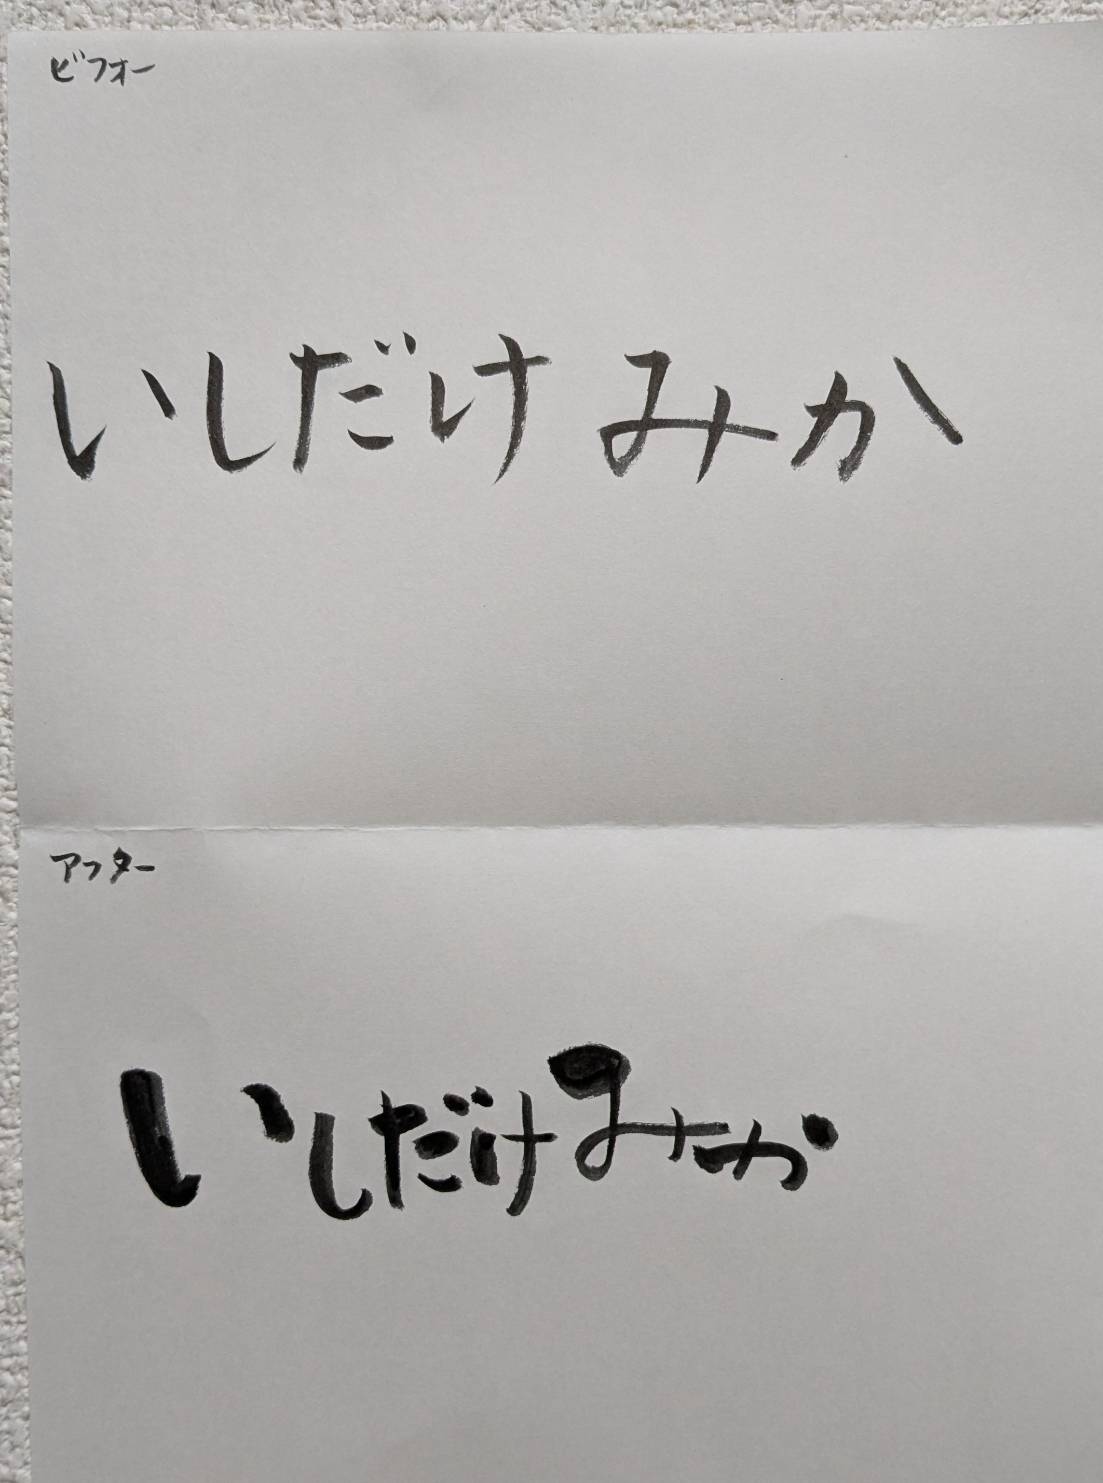 ビフォー
いしだけ みか
アフター
いしだけみか